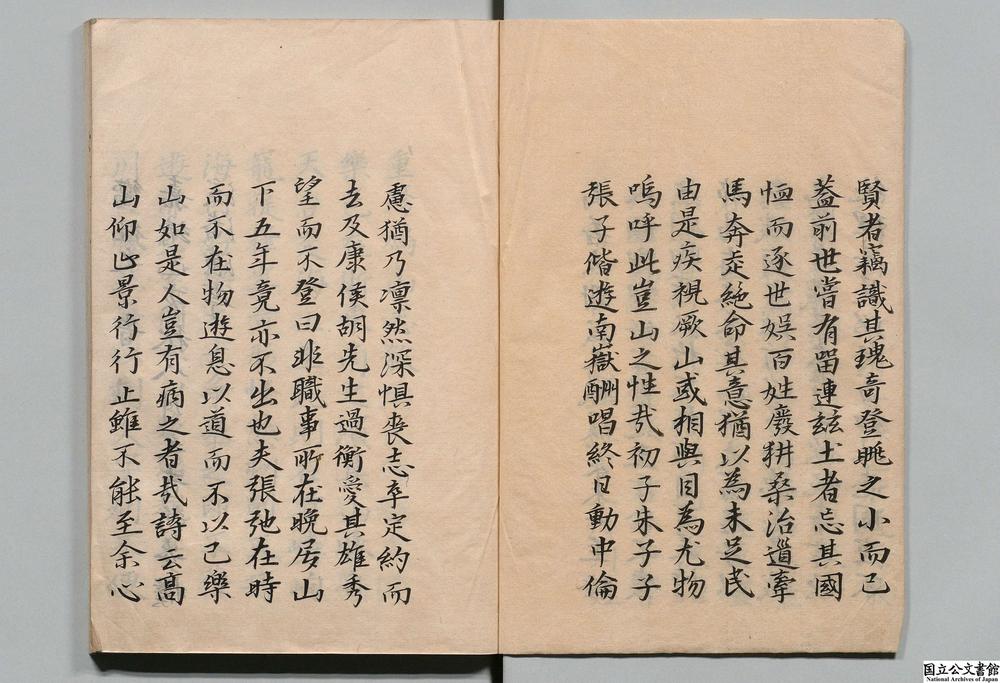 賢者竊識其瑰奇登眺之小而已
蓋前世嘗有留連玆土者忘其國
恤而逐世娯百姓廢耕桑治道牽
馬奔走絶命其意猶以為未足民
由是疾視厥山或相與目為尤物
嗚呼此豈山之性㢤初子朱子子
張子偕遊南嶽酬唱終日動中倫
慮猶乃凛然深惧喪志卒定約而
去及康侯胡先生過衡愛其雄秀
望而不登曰非職事所在晩居山
下五年竟亦不出也夫張弛在時
而不在物遊息以道而不以己樂
山如是人豈有病之者㢤詩云高
山仰止景行行止雖不能至余心
国立公文書館
National Archives of Japan